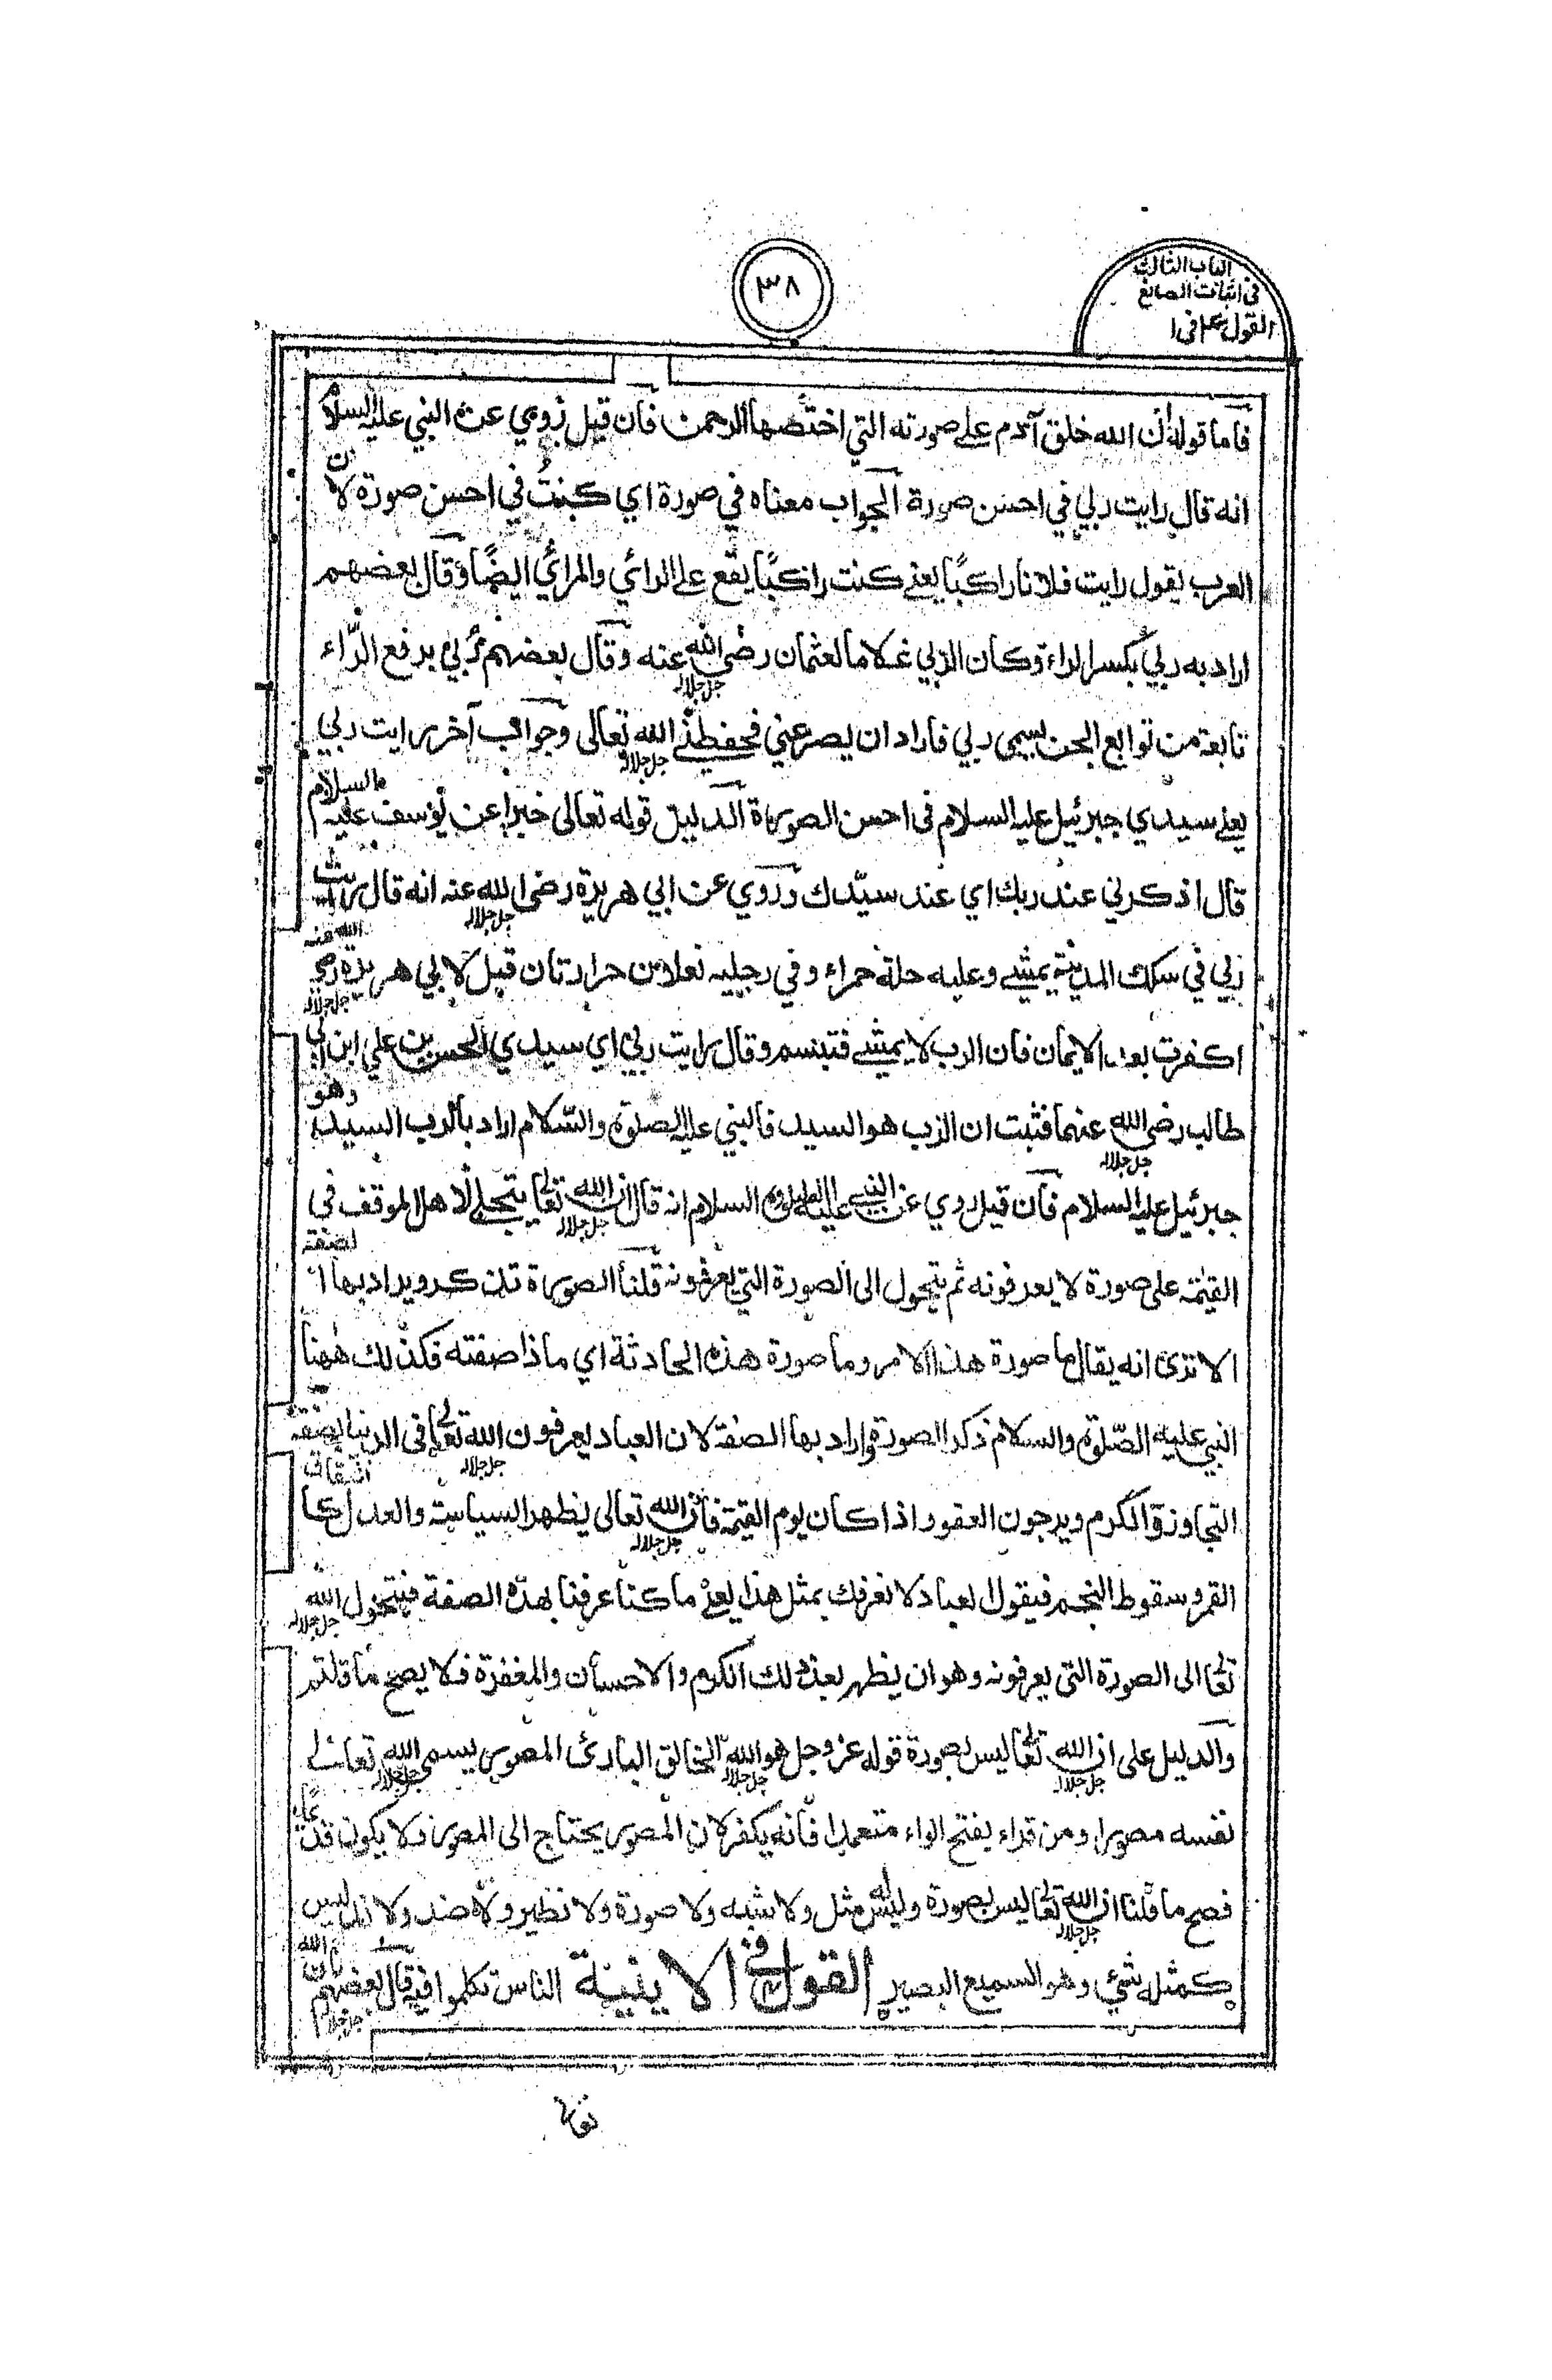 الباب الثالث
في اثبات الصانع
القول في ا
٣٨
فاما قوله ان الله خلق آدم على صورته التي اختصها الرحمن فان قيل روي عن النبي عليه السلام
انه قال رايت ربي في احسن صورة الجواب معناه في صورة اي كنتُ في احسن صورة لان
العرب يقول رايت فلانا راكبًا يعني كنت راكبًا يقع على الرائي والمرائي ايضًا وقال بعضهم
اراد به ربي بكسر الراء وكان الربي غلاما لعثمان رضي الله عنه وقال بعضهم رُبي برفع الرّاء
جل جلاله
تابعة من توابع الجن يسمى ربي فاراد ان يصرعني فحفظني الله تعالى وجواب آخر رايت ربي
جل جلاله
يعني سيدي جبرئيل عليه السلام في احسن الصورة الدليل قوله تعالى خبرا عن يوسف عليه السلام
قال اذكرني عند ربك اي عند سيّدك وروي عن ابي هريرة رضي الله عنه انه قال رايت
جل جلاله
ربي في سكك المدينة يمشي وعليه حلة حمراء وفي رجليه نعلان من حرارتان قيل لابي هريرة رضي الله عنه
جل جلاله
اكفرت بعد الايمان فان الرب لا يمشي فتبسم وقال رايت ربي اي سيدي الحسن بن علي ابن ابي
طالب رضي الله عنهما فثبت ان الرب هو السيد فالنبي عليه الصلوة والسّلام اراد بالرب السيد وهو
جل جلاله
جبرئيل عليه السلام فان قيل روي عن النبي عليه الصلوة و السلام انه قال ان الله تعالى يتجلى لاهل الموقف في
جل جلاله
القيٰمة على صورة لا يعرفونه ثم يتحول الى الصورة التي يعرفونه قلنا الصورة تذكر ويراد بها الصفة
الا ترى انه يقال ما صورة هذا الامر وما صورة هذه الحادثة اي ماذا صفته فكذلك ههنا
النبي عليه الصّلوة والسلام ذكر الصورة واراد بها الصفة لان العباد يعرفون الله تعالى في الدنيا بصفة
جل جلاله
التجاوز والكرم ويرجون العفو واذا كان يوم القيٰمة فان الله تعالى يظهر السياسة والعدل كانشقاق
جل جلاله
القمر وسقوط النجم فيقول العباد لا نعرفك بمثل هذا يعني ما كنا عرفنا بهذه الصفة فيتحول الله
جل جلاله
تعالى الى الصورة التي يعرفونه وهو ان يظهر بعد ذلك الكرم والاحسان والمغفرة فلا يصح ما قلتم
والدليل على ان الله تعالى ليس بصورة قوله عز وجل هو الله الخالق البارئ المصور يسمى الله تعالى
جل جلاله جل جلاله جل جلاله
نفسه مصورا ومن قراء بفتح الواء متعمدا فانه يكفر لان المصور يحتاج الى المصور فلا يكون قديما
فصح ما قلنا ان الله تعالى ليس بصورة وليس له مثل ولا شبه ولا صورة ولا نظير ولا ضد ولا ند ليس
جل جلاله
كمثله شئي وهو السميع البصير القول في الاينية الناس تكلموا فيه قال بعضهم بان الله
جل جلاله
تعالى